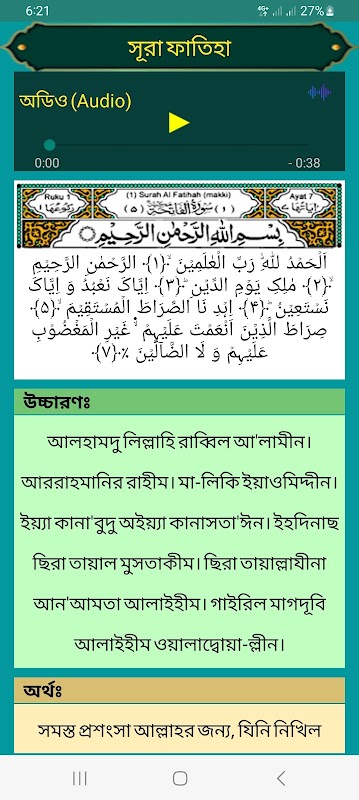 6:21
4G+ 27%
সূরা ফাতিহা
অডিও (Audio)
0:00 - 0:38
(1) Surah Al Fatihah (makki)
Ruku 1 Ayat 7
رُكُوْعُهَا ١ (٥) سُوْرَةُ الْفَاتِحَةِ (١) اٰيَاتُهَا ٧
بِسْمِ اللّٰهِ الرَّحْمٰنِ الرَّحِيْمِ
اَلْحَمْدُ لِلّٰهِ رَبِّ الْعٰلَمِیْنَ ۙ﴿۱﴾ الرَّحْمٰنِ الرَّحِیْمِ
ۙ﴿۲﴾ مٰلِکِ یَوْمِ الدِّیْنِ ؕ﴿۳﴾ اِیَّاکَ نَعْبُدُ وَ اِیَّاکَ
نَسْتَعِیْنُ ؕ﴿۴﴾ اِہْدِ نَا الصِّرَاطَ الْمُسْتَقِیْمَ ۙ﴿۵﴾
صِرَاطَ الَّذِیْنَ اَنْعَمْتَ عَلَیْہِمْ ۙ۬ۦ غَیْرِ الْمَغْضُوْبِ
عَلَیْہِمْ وَ لَا الضَّآلِّیْنَ ٪﴿۷﴾
উচ্চারণঃ
আলহামদু লিল্লাহি রাব্বিল আ'লামীন।
আররাহমানির রাহীম। মা-লিকি ইয়াওমিদ্দীন।
ইয়্যা কানা'বুদু অইয়্যা কানাসতা'ঈন। ইহদিনাছ
ছিরা তায়াল মুসতাকীম। ছিরা তায়াল্লাযীনা
আন'আমতা আলাইহীম। গাইরিল মাগদূবি
আলাইহীম ওয়ালাদ্বোয়া-ল্লীন।
অর্থঃ
সমস্ত প্রশংসা আল্লাহর জন্য, যিনি নিখিল